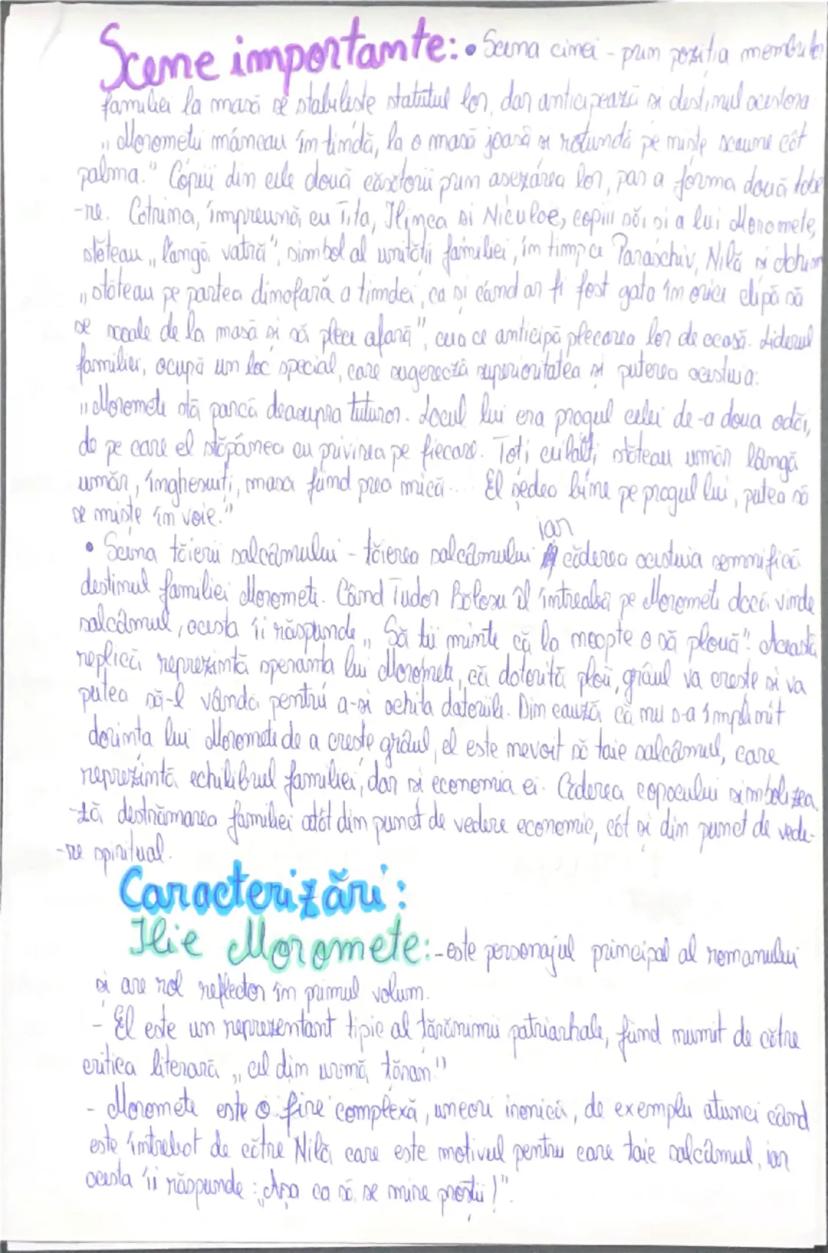 Scene importante: • Scena cinei - prin poziția membrilor
familiei la masă se stabilește statutul lor, dar anticipează și destinul acestora:
„Moromeții mâncau în tindă, la o masă joasă și rotundă pe niște scaune cât
palma." Copiii din cele două căsătorii prin așezarea lor, par a forma două tabe-
-re. Catrina, împreună cu Tita, Ilinca și Niculae, copiii săi și a lui Moromete,
stăteau „lângă vatră", simbol al unității familiei, în timp ce Paraschiv, Nilă și Achim
„stăteau pe partea dinafară a tindei, ca și când ar fi fost gata în orice clipă să
se scoale de la masă și să plece afară", ceea ce anticipă plecarea lor de acasă. Liderul
familiei, ocupă un loc special, care sugerează superioritatea și puterea acestuia:
„Moromete stă parcă deasupra tuturor. Locul lui era pragul celei de-a doua odăi,
de pe care el stăpânea cu privirea pe fiecare. Toți ceilalți stăteau umăr lângă
umăr, înghesuiți, masa fiind prea mică... El ședea bine pe pragul lui, putea să
se miște în voie."
• Scena tăierii salcâmului - tăierea salcâmului iar căderea acestuia semnifică
destinul familiei Moromete. Când Tudor Bălosu îl întreabă pe Moromete dacă vinde
salcâmul, acesta îi răspunde „Să ții minte că la noapte o să plouă". Această
replică reprezintă speranța lui Moromete, că datorită ploii, grâul va crește și va
putea să-l vândă pentru a-și achita datoriile. Din cauză că nu s-a împlinit
dorința lui Moromete de a crește grâul, el este nevoit să taie salcâmul, care
reprezintă echilibrul familiei, dar și economia ei. Căderea copacului simbolizea
-ză destrămarea familiei atât din punct de vedere economic, cât și din punct de vede-
-re spiritual.
Caracterizări:
Ilie Moromete: - este personajul principal al romanului
și are rol reflector în primul volum.
- El este un reprezentant tipic al țărănimii patriarhale, fiind numit de către
critica literară „cel din urmă țăran"
- Moromete este o fire complexă, uneori ironică, de exemplu atunci când
este întrebat de către Nilă care este motivul pentru care taie salcâmul, iar
acesta îi răspunde: „Așa ca să se mire proștii!".